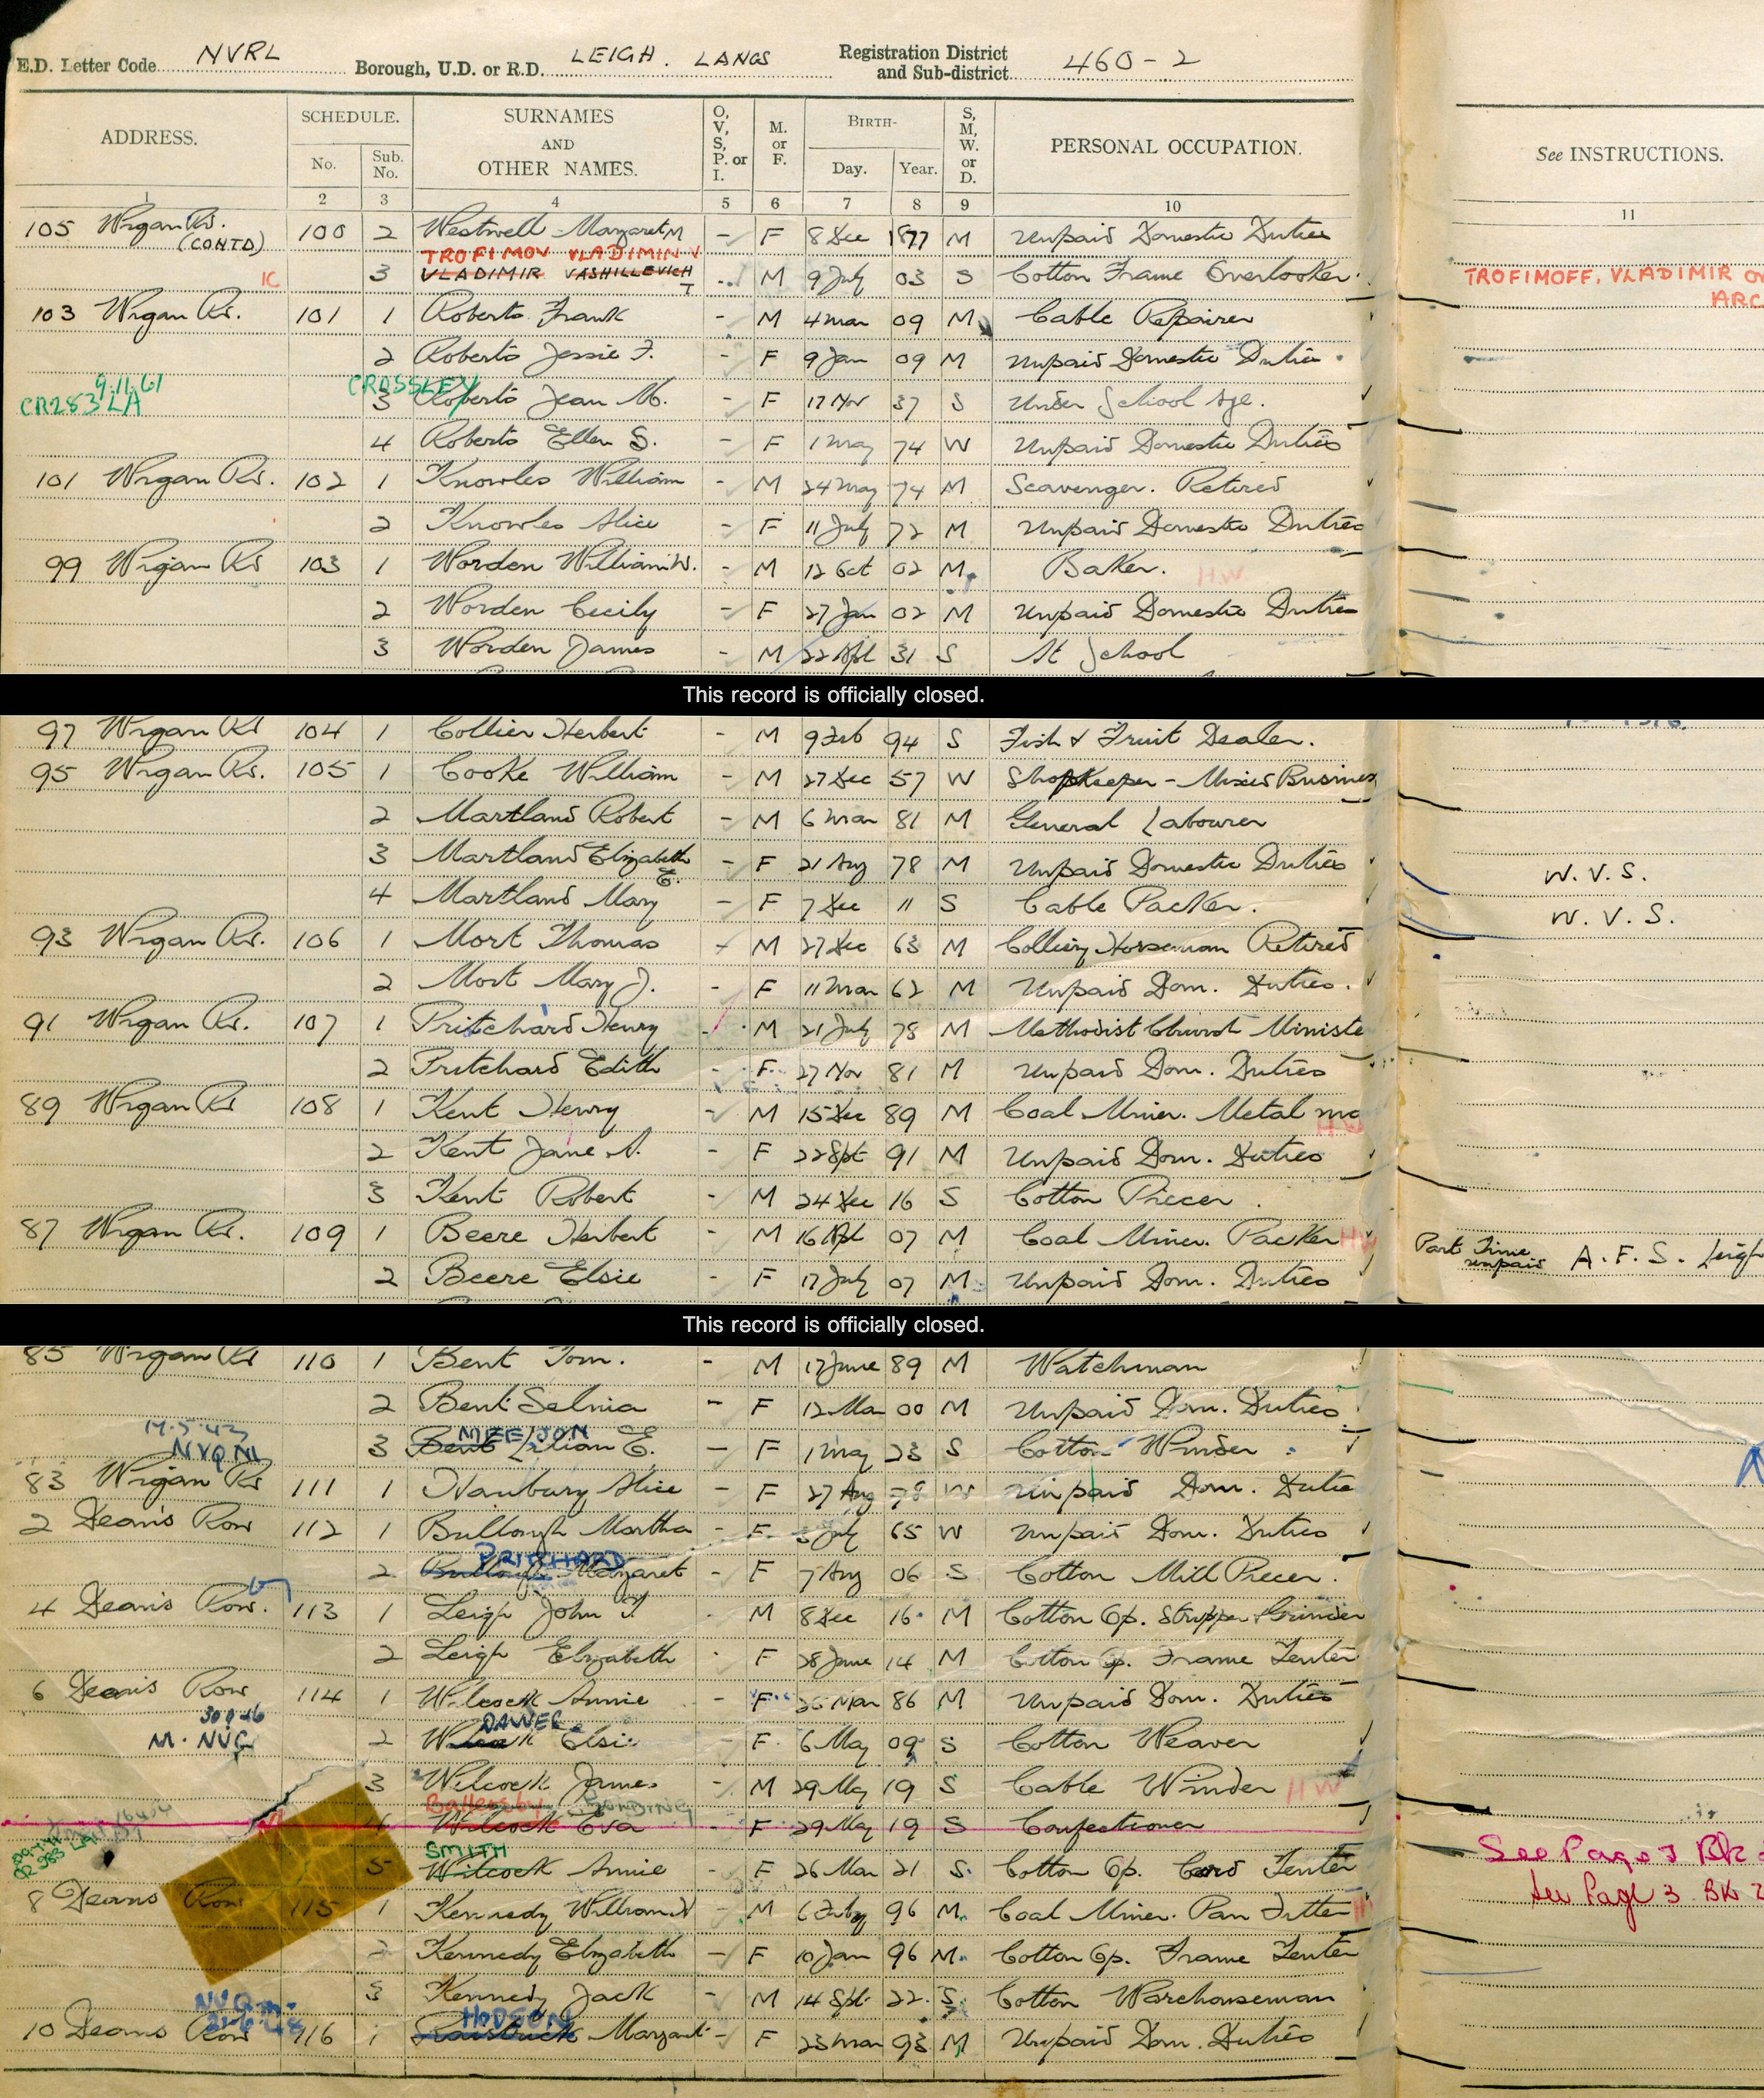 E.D. Letter Code NVRL Borough, U.D. or R.D. LEIGH. LANCS Registration District and Sub-district 460-2
ADDRESS. SCHEDULE. No. Sub. No. SURNAMES AND OTHER NAMES. O, V, S, P. or I. M. or F. BIRTH- Day. Year. S, M, W. or D. PERSONAL OCCUPATION. See INSTRUCTIONS.
1 2 3 4 5 6 7 8 9 10 11
105 Wigan Rd. (CONTD) 100 2 Westwell Margaret M - F 8 Dec 1877 M Unpaid Domestic Duties
TROFIMOV VLADIMIN V
IC 3 VLADIMIR VASHILLEVICH T - M 9 July 03 S Cotton Frame Overlooker. TROFIMOFF, VLADIMIR ARC
103 Wigan Rd. 101 1 Roberts Frank - M 4 Mar 09 M Cable Repairer
2 Roberts Jessie F. - F 9 Jan 09 M Unpaid Domestic Duties
9.11.61 CROSSLEY
CR283 LA 3 Roberts Jean M. - F 17 Nov 37 S Under School Age.
4 Roberts Ellen S. - F 1 May 74 W Unpaid Domestic Duties
101 Wigan Rd. 102 1 Knowles William - M 24 May 74 M Scavenger. Retired
2 Knowles Alice - F 11 July 72 M Unpaid Domestic Duties
99 Wigan Rd 103 1 Worden William W. - M 12 Oct 02 M Baker. HW
2 Worden Cecily - F 27 Jan 02 M Unpaid Domestic Duties
3 Worden James - M 22 Apl 31 S At School
This record is officially closed.
97 Wigan Rd 104 1 Collier Herbert - M 9 Feb 94 S Fish & Fruit Dealer.
95 Wigan Rd. 105 1 Cooke William - M 27 Dec 57 W Shopkeeper - Mixed Business
2 Martland Robert - M 6 Mar 81 M General Labourer
3 Martland Elizabeth E. - F 21 Aug 78 M Unpaid Domestic Duties W.V.S.
4 Martland Mary - F 7 Dec 11 S Cable Packer. W.V.S.
93 Wigan Rd. 106 1 Mort Thomas - M 27 Dec 63 M Colliery Horseman Retired
2 Mort Mary J. - F 11 Mar 62 M Unpaid Dom. Duties.
91 Wigan Rd. 107 1 Pritchard Henry - M 21 July 78 M Methodist Church Ministe
2 Pritchard Edith - F 27 Nov 81 M Unpaid Dom. Duties
89 Wigan Rd 108 1 Kent Henry - M 15 Dec 89 M Coal Miner. Metal HW
2 Kent Jane A. - F 22 Spt 91 M Unpaid Dom. Duties
3 Kent Robert - M 24 Dec 16 S Cotton Piecer
87 Wigan Rd. 109 1 Beere Herbert - M 16 Apl 07 M Coal Miner. Packer HW Part Time unpaid A.F.S. Leigh
2 Beere Elsie - F 17 July 07 M Unpaid Dom. Duties
This record is officially closed.
85 Wigan Rd 110 1 Bent Tom. - M 17 June 89 M Watchman
2 Bent Selina - F 12 Mar 00 M Unpaid Dom. Duties
NVQ NL MEE/JON
3 Bent Lilian E. - F 1 May 23 S Cotton Winder
83 Wigan Rd 111 1 Hanbury Alice - F 27 Aug 78 W Unpaid Dom. Dutie
2 Deans Row 112 1 Bullough Martha - F July 65 W Unpaid Dom. Duties
PRITCHARD
2 Bullough Margaret - F 7 Aug 06 S Cotton Mill Piecer.
4 Deans Row. 113 1 Leigh John T. M 8 Dec 16 M Cotton Op. Stripper & Grinder
2 Leigh Elizabeth F 28 June 14 M Cotton Op. Frame Tenter
6 Deans Row 114 1 Wilcock Annie - F 26 Mar 86 M Unpaid Dom. Duties
M. NVG 2 Elsie - F 6 May 09 S Cotton Weaver
3 Wilcock James - M 29 May 19 S Cable Winder HW
Battersby
4 Wilcock Eva - F 29 May 19 S Confectioner
SMITH See Page 3 Bk
5 Wilcock Annie - F 26 Mar 21 S. Cotton Op. Card Tenter
8 Deans Row 115 1 Kennedy William - M 6 96 M. Coal Miner. Pan Fitter See Page 3 BK 2
2 Kennedy Elizabeth - F 10 Jan 96 M Cotton Op. Frame Tenter
3 Kennedy Jack - M 14 Spt 22 S Cotton Warehouseman
HODSON
10 Deans Row 116 1 Margaret - F 23 Mar 93 M Unpaid Dom. Duties